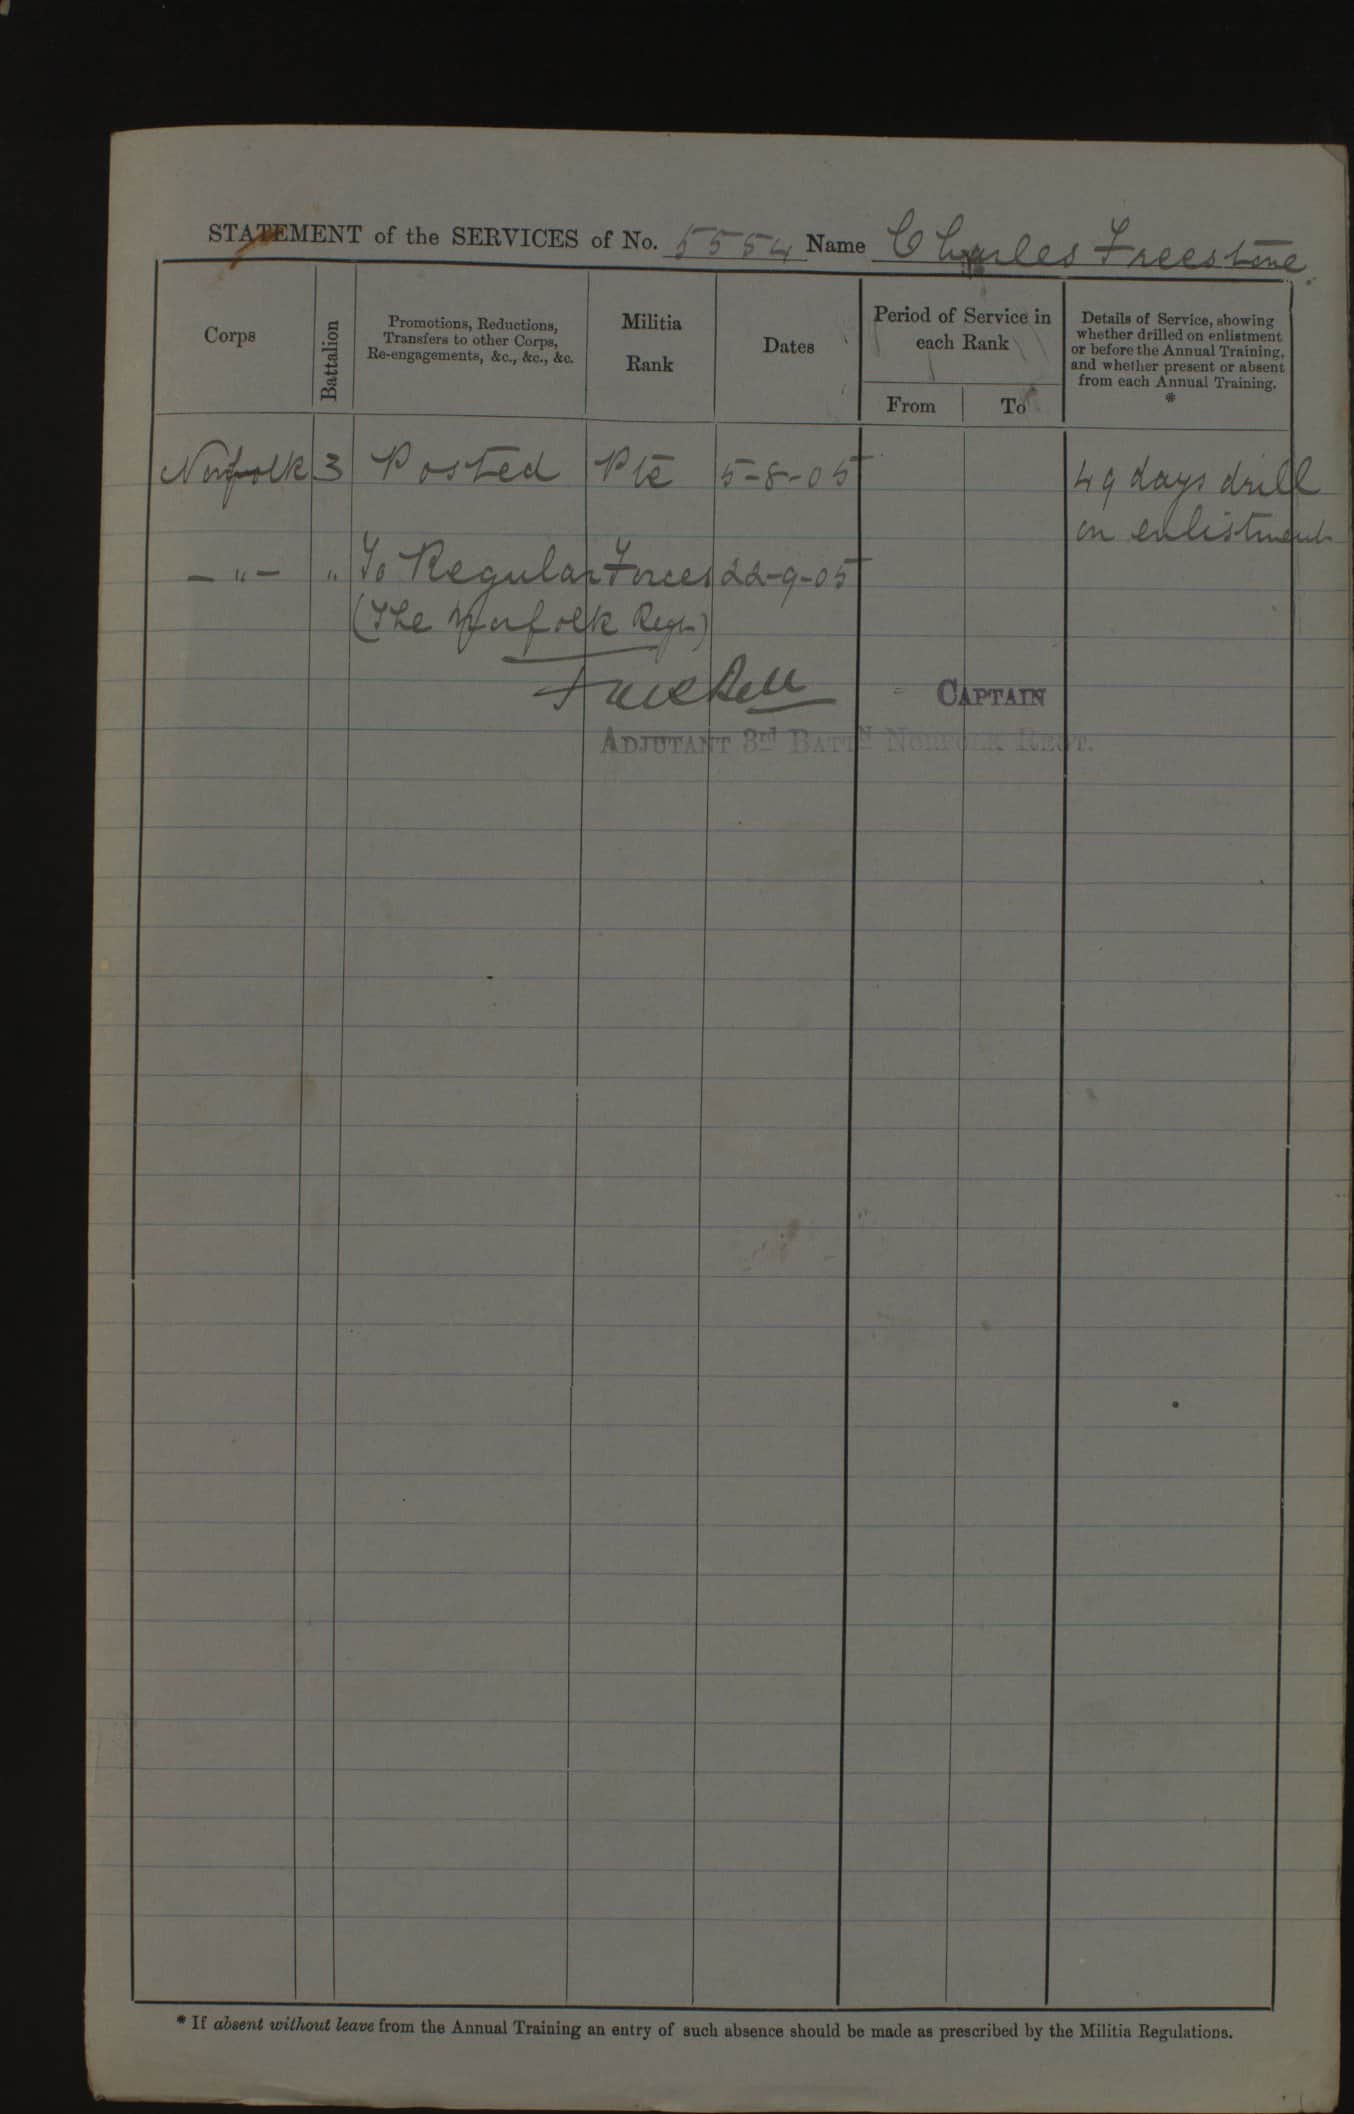 STATEMENT of the SERVICES of No. 5554 Name Charles Freestone
Corps
Battalion
Promotions, Reductions,
Transfers to other Corps,
Re-engagements, &c., &c., &c.
Militia
Rank
Dates
Period of Service in
each Rank
From To
Details of Service, showing
whether drilled on enlistment
or before the Annual Training,
and whether present or absent
from each Annual Training.
*
Norfolk 3 Posted Pte 5-8-05 49 days drill
on enlistment
— " — " To Regular Forces 22-9-05
(The Norfolk Regt.)
CAPTAIN
ADJUTANT 3rd BATTN NORFOLK REGT.
* If absent without leave from the Annual Training an entry of such absence should be made as prescribed by the Militia Regulations.